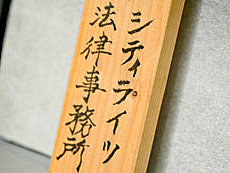 シティライツ
法律事務所